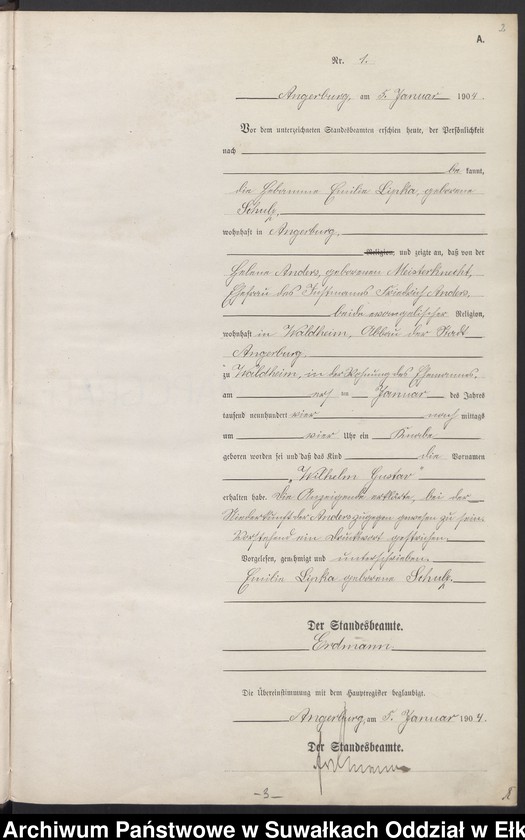 2
A.
Nr. 1.
Angerburg, am 5. Januar 1904.
Vor dem unterzeichneten Standesbeamten erschien heute, der Persönlichkeit
nach
be kannt,
die Hebamme Emilie Lipka, geborene
Schulz,
wohnhaft in Angerburg,
Religion, und zeigte an, daß von der
Helene Anders, geborenen Meisterknecht,
Ehefrau des Instmanns Friedrich Anders,
beide evangelischer Religion,
wohnhaft in Waldheim, Abbau der Stadt
Angerburg
zu Waldheim, in der Wohnung des Ehemannes,
am ersten Januar des Jahres
tausend neunhundert vier nach mittags
um vier Uhr ein Knabe
geboren worden sei und daß das Kind die Vornamen
„Wilhelm Gustav"
erhalten habe. Die Anzeigende erklärte, bei der
Niederkunft der Anders zugegen gewesen zu sein.
Vorstehend ein Druckwort gestrichen.
Vorgelesen, genehmigt und unterschrieben.
Emilie Lipka geborene Schulz.
Der Standesbeamte.
Erdmann.
Die Übereinstimmung mit dem Hauptregister beglaubigt.
Angerburg, am 5. Januar 1904.
Der Standesbeamte.
Erdmann
-3-
Archiwum Państwowe w Suwałkach Oddział w Ełk